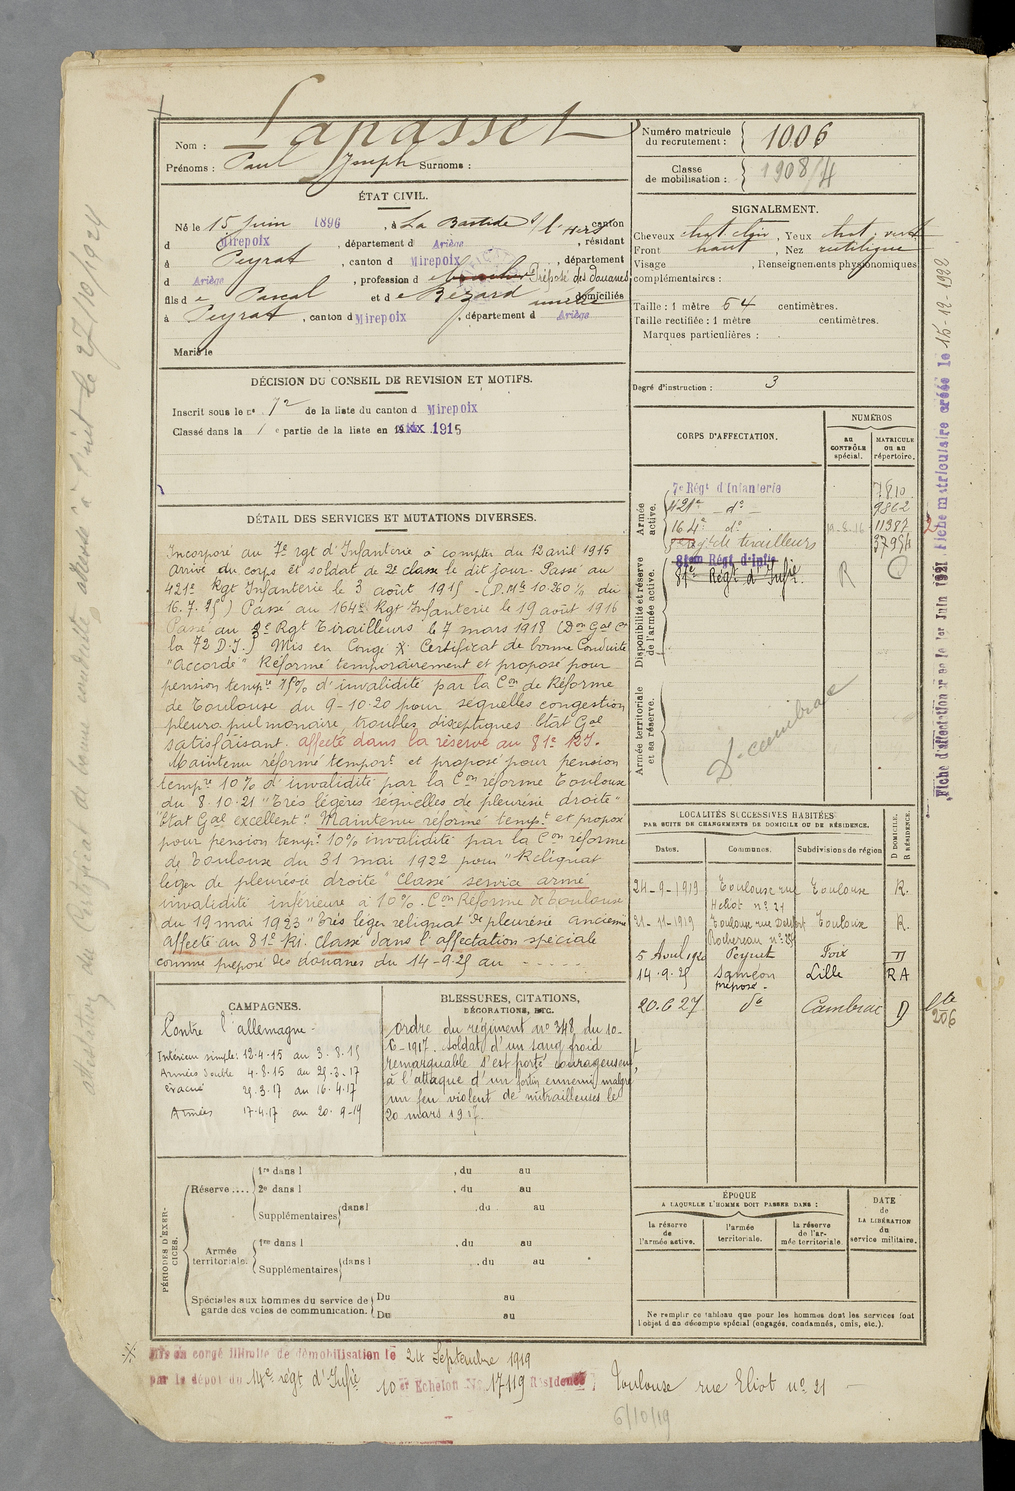 Lapasset
Nom :
Prénoms : Paul Joseph Surnoms :
Numéro matricule du recrutement : 1006
Classe de mobilisation : 1908/4
ÉTAT CIVIL.
Né le 15 Juin 1896, à La Bastide s/ l'Hers canton
d Mirepoix, département d Ariège, résidant
à Peyrat, canton d Mirepoix, département
d Ariège, profession d Préposé des douanes
fils de Pascal et de Bézard domiciliés
à Peyrat, canton d Mirepoix, département d Ariège
Marié le
SIGNALEMENT.
Cheveux chat clair, Yeux chat. vert
Front haut, Nez rectiligne
Visage , Renseignements physionomiques
complémentaires :
Taille : 1 mètre 64 centimètres.
Taille rectifiée : 1 mètre centimètres.
Marques particulières :
Degré d'instruction : 3
DÉCISION DU CONSEIL DE REVISION ET MOTIFS.
Inscrit sous le n° 72 de la liste du canton d Mirepoix
Classé dans la 1 e partie de la liste en 1915
CORPS D'AFFECTATION.
NUMÉROS
au CONTRÔLE spécial.
MATRICULE ou au répertoire.
Armée active.
7e Régt d'Infanterie 7810
421e d° 9862
164e d° 11387
Régt de tirailleurs
Disponibilité et réserve de l'armée active.
81eme Régt d'Infie
81e Régt d'Infie. R
Armée territoriale et sa réserve.
D. cambrai
DÉTAIL DES SERVICES ET MUTATIONS DIVERSES.
Incorporé au 7e rgt d'Infanterie à compter du 12 avril 1915
Arrivé du corps et soldat de 2e classe le dit jour. Passé au
421e Rgt Infanterie le 3 août 1915 - (D.Mle 10.260 1/1 du
16.7.15) Passé au 164e Rgt Infanterie le 19 août 1916
Passé au 3e Rgt Tirailleurs le 7 mars 1918 (Don Gal Ct
la 72 D.I.) Mis en Congé X. Certificat de bonne Conduite
"Accordé" Réformé temporairement et proposé pour
pension tempre 15% d'invalidité par la Con de Réforme
de Toulouse du 9-10-20 pour séquelles congestion
pleuro pulmonaire, troubles diseptiques. Etat Gal
satisfaisant. affecté dans la réserve au 81e RI.
Maintenu réformé temport et proposé pour pension
tempre 10% d'invalidité par la Con réforme Toulouse
du 8.10.21 "Très légères séquelles de pleurésie droite"
"Etat Gal excellent". Maintenu réformé tempt et proposé
pour pension tempre 10% invalidité par la Con réforme
de Toulouse du 31 mai 1922 pour "Reliquat
léger de pleurésie droite" Classé service armé
invalidité inférieure à 10%. Con Réforme de Toulouse
du 19 mai 1923 "Très léger reliquat de pleurésie ancienne
affecté au 81e RI. Classé dans l'affectation spéciale
comme préposé des douanes du 14-9-25 au - - - - -
LOCALITÉS SUCCESSIVES HABITÉES
PAR SUITE DE CHANGEMENTS DE DOMICILE OU DE RÉSIDENCE.
Dates. Communes. Subdivisions de région D DOMICILE. R RÉSIDENCE.
24-9-1919 Toulouse rue Heliot n° 21 Toulouse R.
21-11-1919 Toulouse rue Denfert Rochereau n° 25 Toulouse R.
5 Avril 1920 Peyrat Foix D
14.9.25 Sameon préposé. Lille R A
20.6.27 d° Cambrai D
CAMPAGNES.
Contre l'allemagne.
Intérieur simple : 12.4.15 au 3.8.15
Armées double 4.8.15 au 25.3.17
Evacué 25.3.17 au 16.4.17
Armées 17.4.17 au 20.9.19
BLESSURES, CITATIONS,
DÉCORATIONS, ETC.
Ordre du régiment n° 348 du 10-
6-1917. Soldat d'un sang froid
remarquable s'est porté courageusement
à l'attaque d'un fortin ennemi malgré
un feu violent de mitrailleuses le
20 mars 1917.
PÉRIODES D'EXERCICES.
Réserve....
1re dans l , du au
2e dans l , du au
Supplémentaires dans l , du au
Armée territoriale.
1re dans l , du au
Supplémentaires dans l , du au
Spéciales aux hommes du service de garde des voies de communication.
Du au
Du au
ÉPOQUE
A LAQUELLE L'HOMME DOIT PASSER DANS :
la réserve de l'armée active.
l'armée territoriale.
la réserve de l'armée territoriale.
DATE de LA LIBÉRATION du service militaire.
Ne remplir ce tableau que pour les hommes dont les services font
l'objet d'un décompte spécial (engagés, condamnés, omis, etc.).
Mis en congé illimité de démobilisation le 24 Septembre 1919
par le dépôt du 14e régt d'Infie 10 er Echelon No 17119 Résidence Toulouse rue Eliot n° 21
6/10/19
Fiche matriculaire créée le 15-12-1922